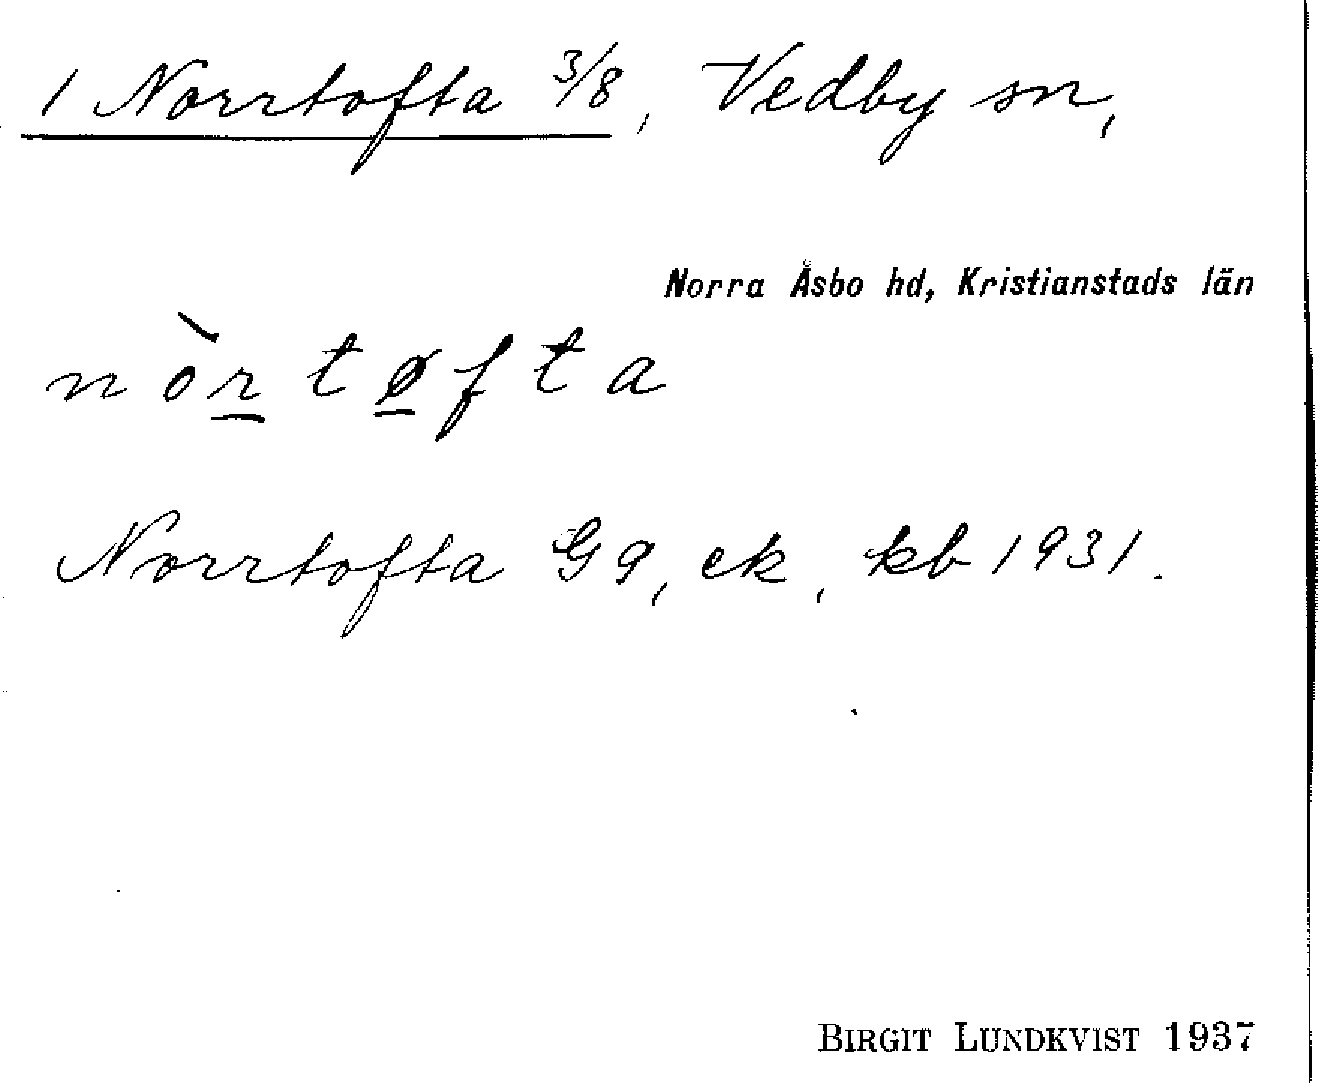 1 Norrtofta 3/8, Vedby sn,
Norra Åsbo hd, Kristianstads län
nòr̲tø̲fta
Norrtofta G9, ek, kb 1931.
BIRGIT LUNDKVIST 1937